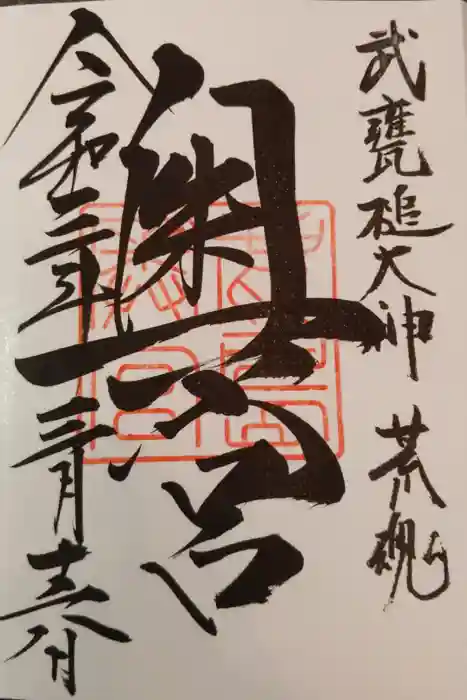 武甕槌大神 荒魂
奥宮
令和三年三月十六日